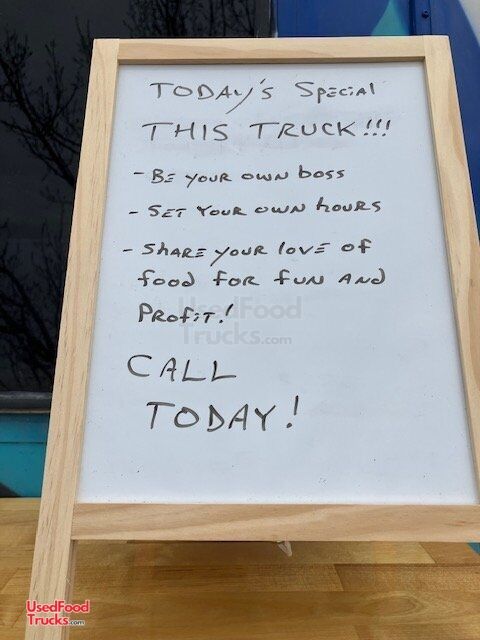 TODAY'S SPECIAL
THIS TRUCK!!!
- BE YOUR OWN BOSS
- SET YOUR OWN HOURS
- SHARE YOUR LOVE OF
FOOD FOR FUN AND
PROFIT!
UsedFood
Trucks.com
CALL
TODAY!
UsedFood
Trucks.com